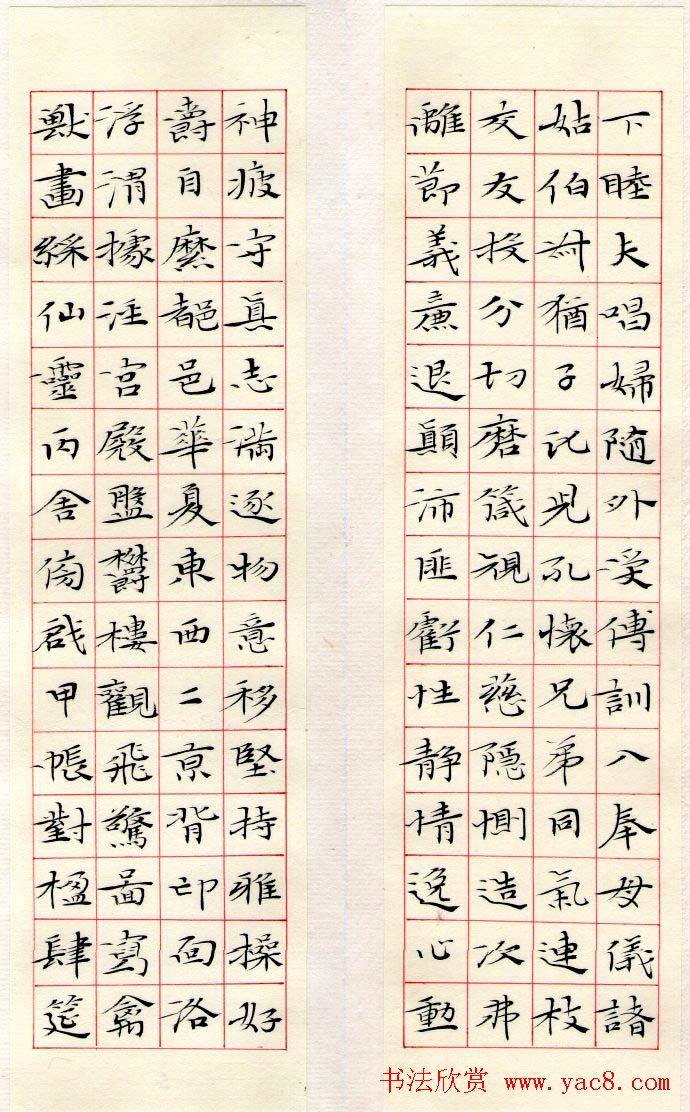 下睦夫唱婦随外受傅訓入奉母儀諸
姑伯叔猶子比兒孔懷兄弟同氣連枝
交友投分切磨箴規仁慈隱惻造次弗
離節義廉退顛沛匪虧性静情逸心動
神疲守眞志滿逐物意移堅持雅操好
爵自縻都邑華夏東西二亰背邙面洛
浮渭據涇宮殿盤鬱樓觀飛驚啚寫禽
獸畫綵仙靈丙舍傍啟甲帳對楹肆筵
书法欣赏 www.yac8.com